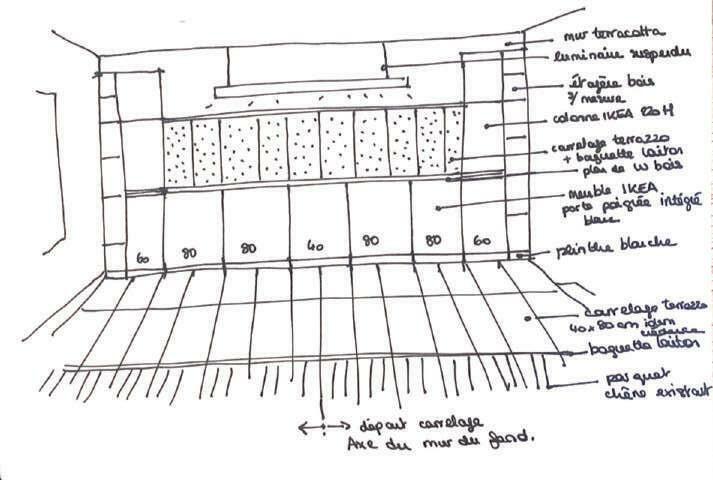 mur terracotta
luminaire suspendu
étagère bois
s/ mesure
colonne IKEA 220H
carrelage terrazzo
+ baguette laiton
plan de W bois
meuble IKEA
porte poignée intégré
blanc
60 80 80 40 80 80 60
plinthe blanche
carrelage terrazzo
40x80 cm idem
crédence
baguette laiton
parquet
chêne existant
départ carrelage
Axe du mur du fond.